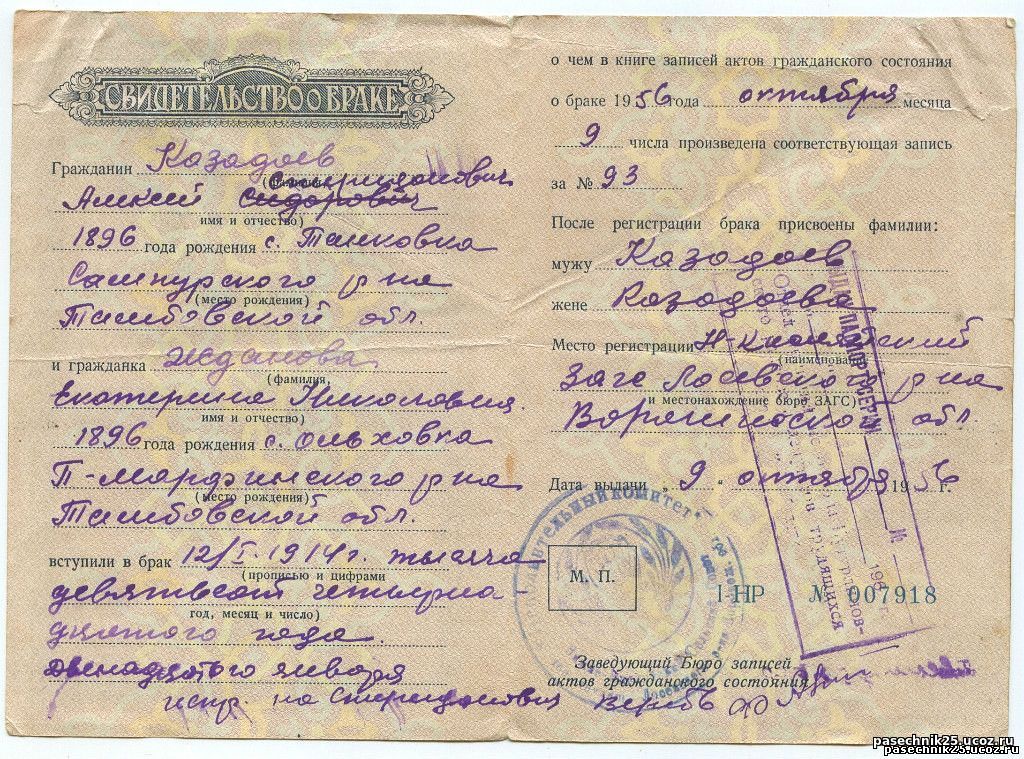 СВИДЕТЕЛЬСТВО О БРАКЕ
Гражданин Казадаев
(фамилия)
Спиридонович
Алексей Сидорович
имя и отчество)
1896 года рождения с. Тамковка
Сампурского р-на
(место рождения)
Тамбовской обл.
и гражданка Жданова
(фамилия,
Екатерина Николавна
имя и отчество)
1896 года рождения с. Ольховка
П-Марфинского р-на
(место рождения)
Тамбовской обл.
вступили в брак 12/I-1914г. тысяча
(прописью и цифрами
девятьсот четырна-
год, месяц и число)
дцатого года
двенадцатого января
испр. на Спиридонович
о чем в книге записей актов гражданского состояния
о браке 1956 года октября месяца
9 числа произведена соответствующая запись
за № 93
После регистрации брака присвоены фамилии:
мужу Казадаев
жене Казадаева
Место регистрации
(наименование
Загс Лосевского р-на
и местонахождение бюро ЗАГС)
Воронежской обл.
Дата выдачи „ 9 “ октября 1956 г.
М. П.
I-НР № 007918
Заведующий Бюро записей
актов гражданского состояния
pasechnik25.ucoz.ru
pasechnik25.ucoz.ru